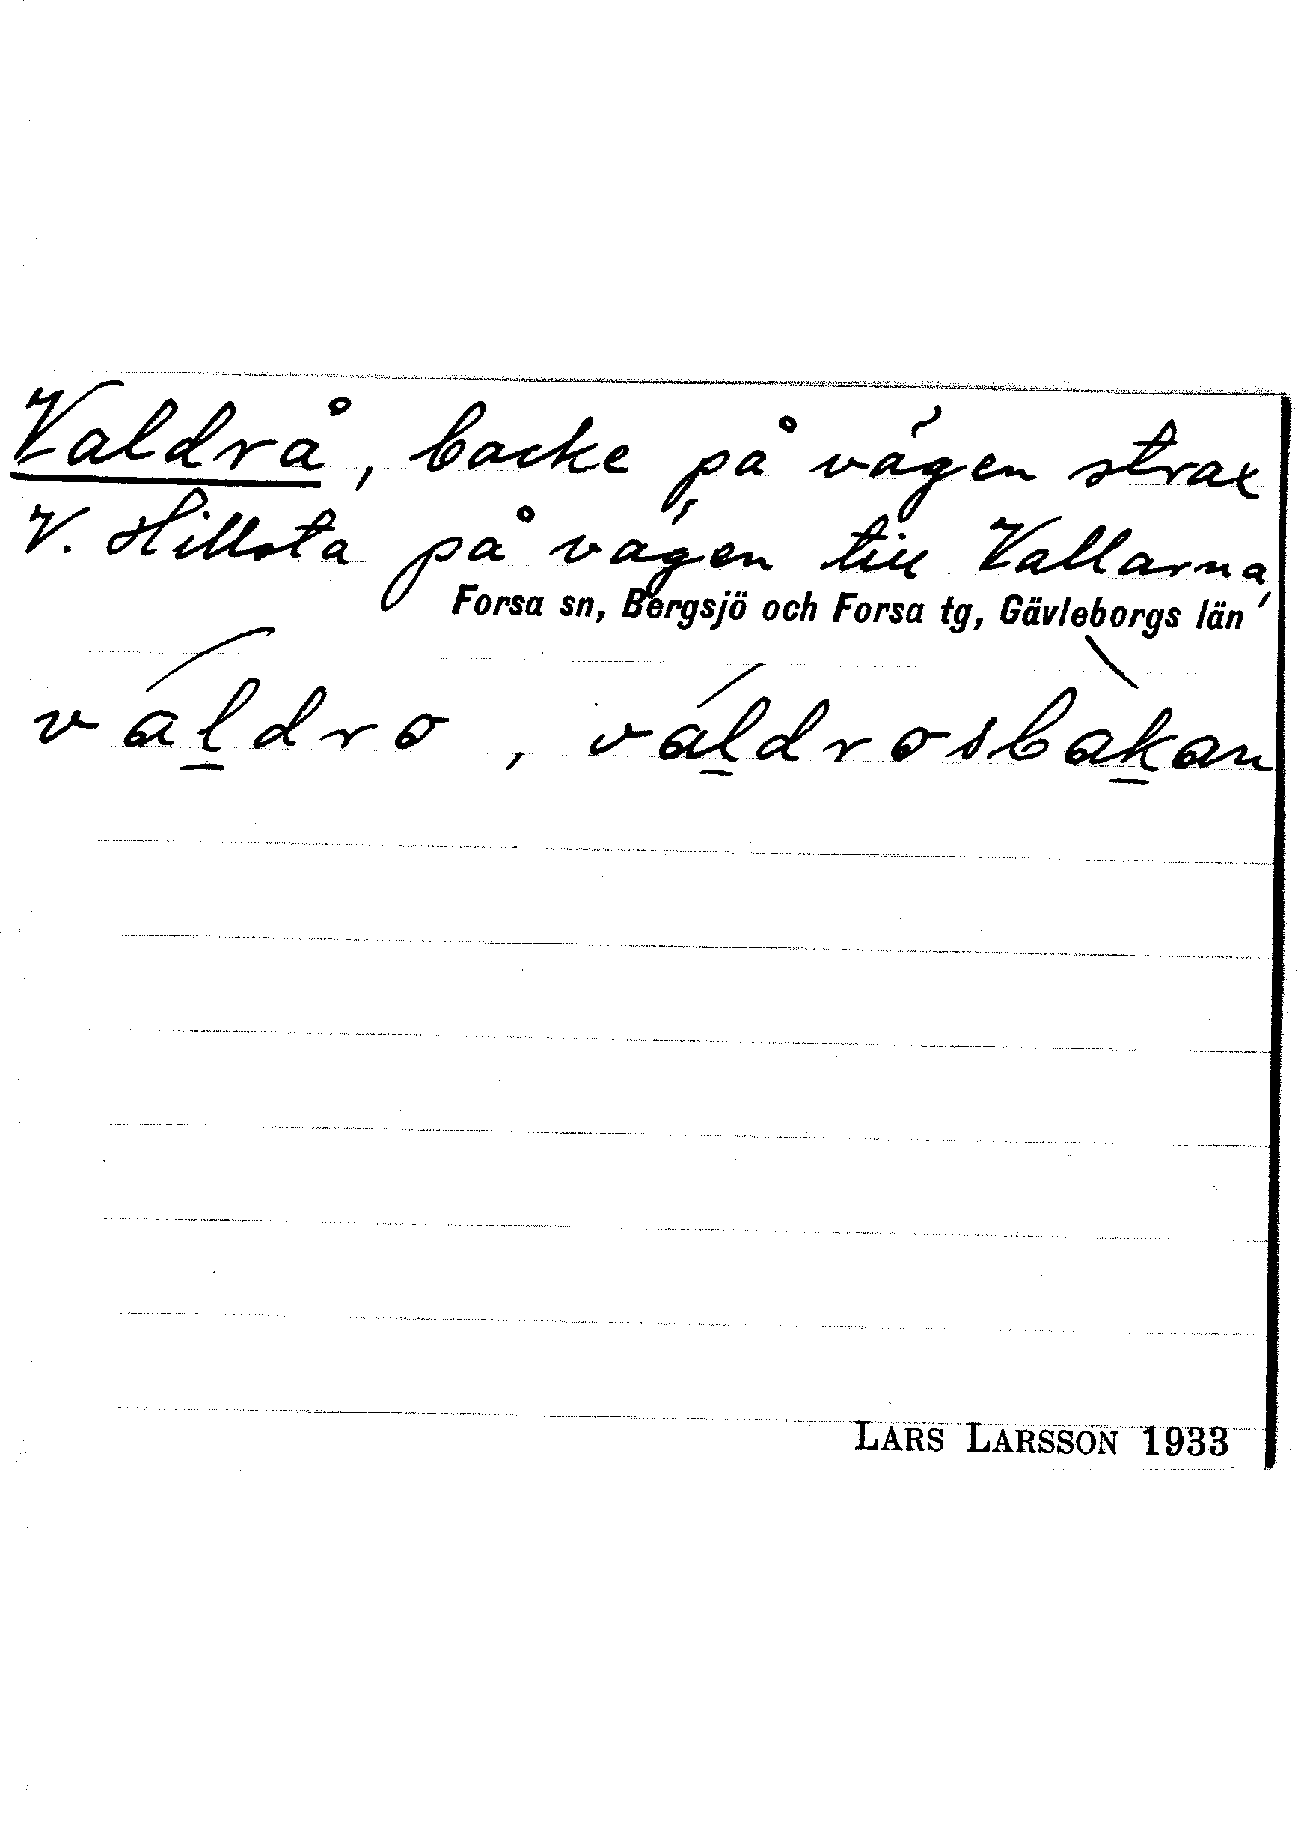 Valdrå, backe på vägen strax
V. Hillsta på vägen till Vallarna,
Forsa sn, Bergsjö och Forsa tg, Gävleborgs län
váldro, váldrosbàkan
LARS LARSSON 1933